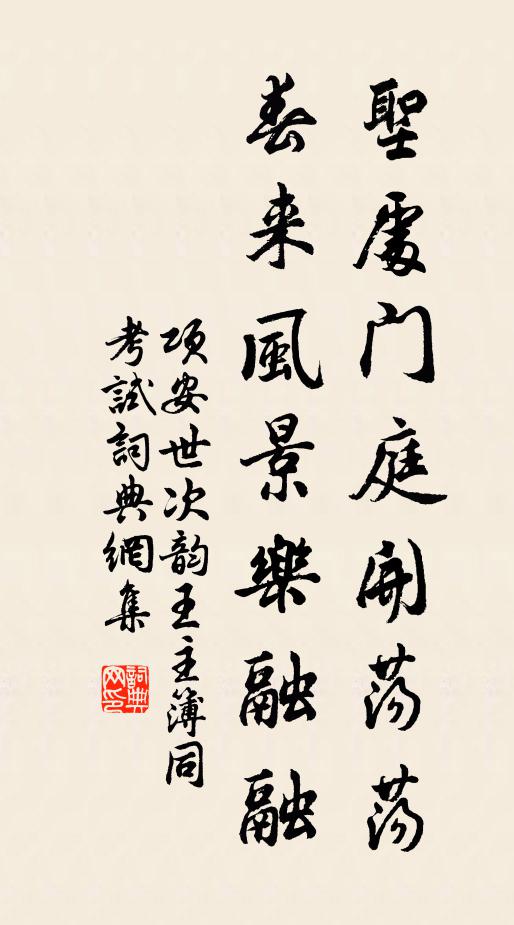 聖處門庭開蕩蕩
春來風景樂融融
項安世次韵王主簿同
考試詞典網集
詞典網印